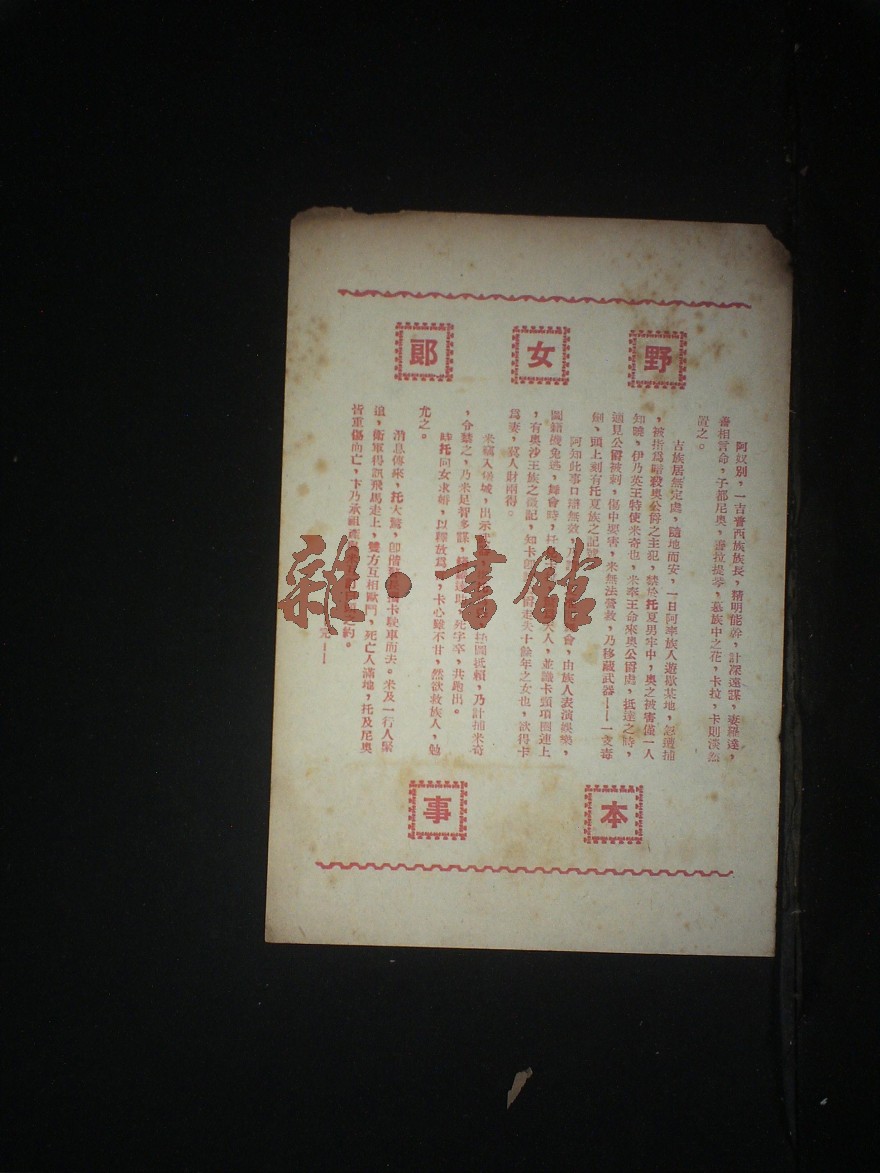 野女郎
本事
阿奴別，一吉普西族族長，精明能幹，計深遠謀，妻羅達，
善相言命，子都尼奥，善拉提琴，慕族中之花，卡拉，卡則淡然
置之。
吉族居無定處，隨地而安，一日阿率族人遊歇某地，忽遭捕
，被指為暗殺奥公爵之主犯，禁於托夏男牢中，奥之被害僅一人
知曉，伊乃英王特使米奇也，米奉王命來奥公爵處，抵達之時，
適見公爵被刺，傷中要害，米無法營救，乃移藏武器——一支毒
劍，頭上刻有托夏族之記
阿知此事口辯無效，乃 會，由族人表演娛樂，
圖藉機免逃，舞會時，托 夫人，並識卡頸項圈連上
，有奥沙王族之徽記，知卡 爵走失十餘年之女也，欲得卡
為妻，冀人財兩得。
米竊入堡城，出示 托圖抵賴，乃計捕米奇
，令 之，乃米 智多謀， 守卒，共跑出。
時托向女求婚，以釋放為 ，卡心雖不甘，然欲救族人，勉
允之。
消息傳來，托大驚，即偕 卡驍車而去。米及一行人緊
追，衛軍得訊飛馬走上，雙方互相毆鬥，死亡人滿地，托及尼奥
皆重傷而亡，卡乃承祖產 之約。
完——
雜·書館